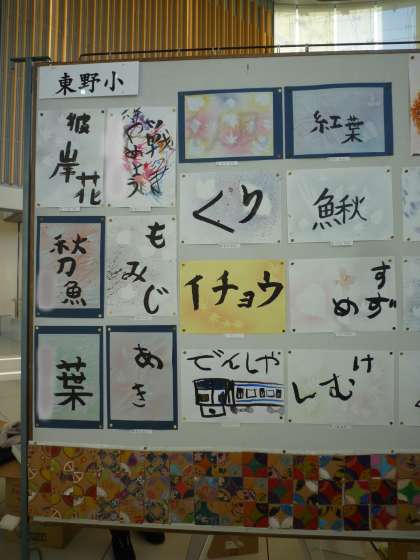 東野小
彼岸花
紅葉
くり
鰍
秋刀魚
もみじ
イチョウ
すずめ
葉
あき
でんしゃ
けむし